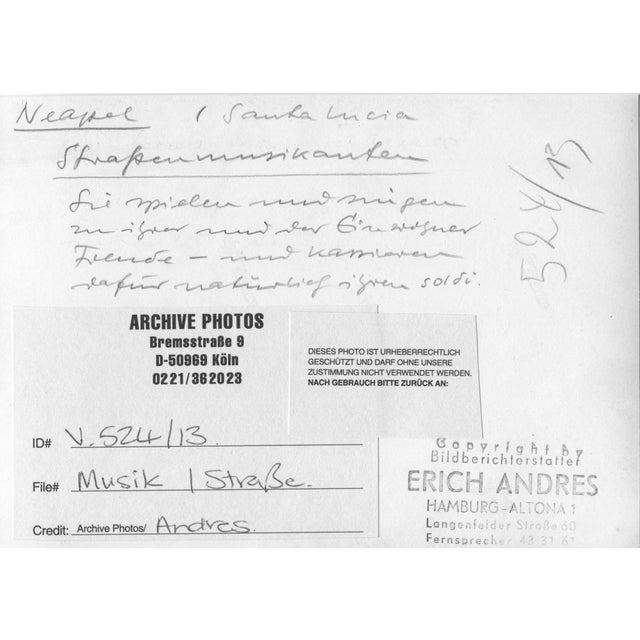 Neapel / Santa Lucia
Straßenmusikanten
Sie spielen und singen
zu ihrer und der Einwohner
Freude – und kassieren
dafür natürlich ihren soldi.
524/13
ARCHIVE PHOTOS
Bremsstraße 9
D-50969 Köln
0221/362023
DIESES PHOTO IST URHEBERRECHTLICH
GESCHÜTZT UND DARF OHNE UNSERE
ZUSTIMMUNG NICHT VERWENDET WERDEN.
NACH GEBRAUCH BITTE ZURÜCK AN:
ID# V.524/13.
File# Musik / Straße.
Credit: Archive Photos/ Andres.
Copyright by
Bildberichterstatter
ERICH ANDRES
HAMBURG-ALTONA 1
Langenfelder Straße 60
Fernsprecher 43 31 61